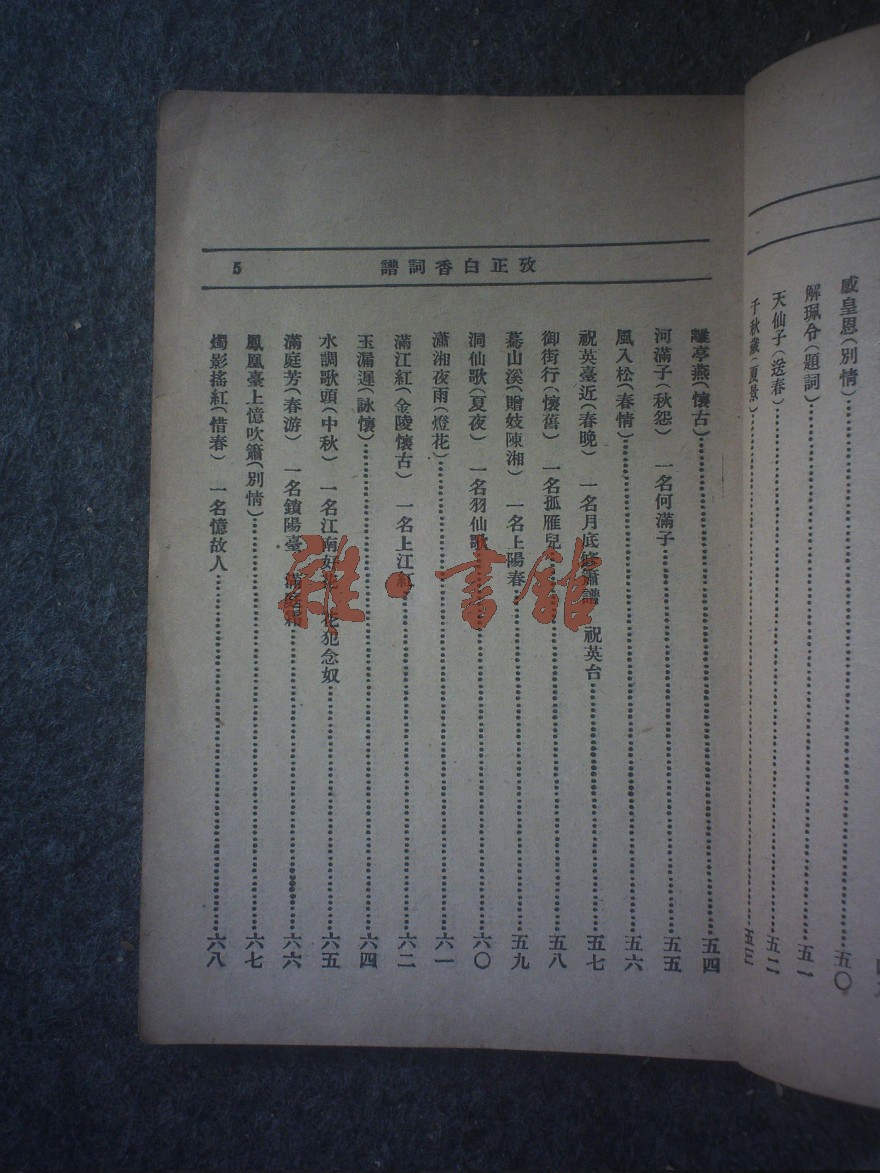 感皇恩(別情)……五〇
解珮令(題詞)……五一
天仙子(送春)……五二
千秋歲(夏景)……五三
攷正白香詞譜
5
離亭燕(懷古)……五四
河滿子(秋怨) 一名何滿子……五五
風入松(春情)……五六
祝英臺近(春晚) 一名月底修簫譜 祝英台……五七
御街行(懷舊) 一名孤雁兒……五八
驀山溪(贈妓陳湘) 一名上陽春……五九
洞仙歌(夏夜) 一名羽仙歌……六〇
瀟湘夜雨(燈花)……六一
滿江紅(金陵懷古) 一名上江紅……六二
玉漏遲(詠懷)……六四
水調歌頭(中秋) 一名江南好 花犯念奴……六五
滿庭芳(春游) 一名鎖陽臺 滿庭霜……六六
鳳凰臺上憶吹簫(別情)……六七
燭影搖紅(惜春) 一名憶故人……六八
雜·書館